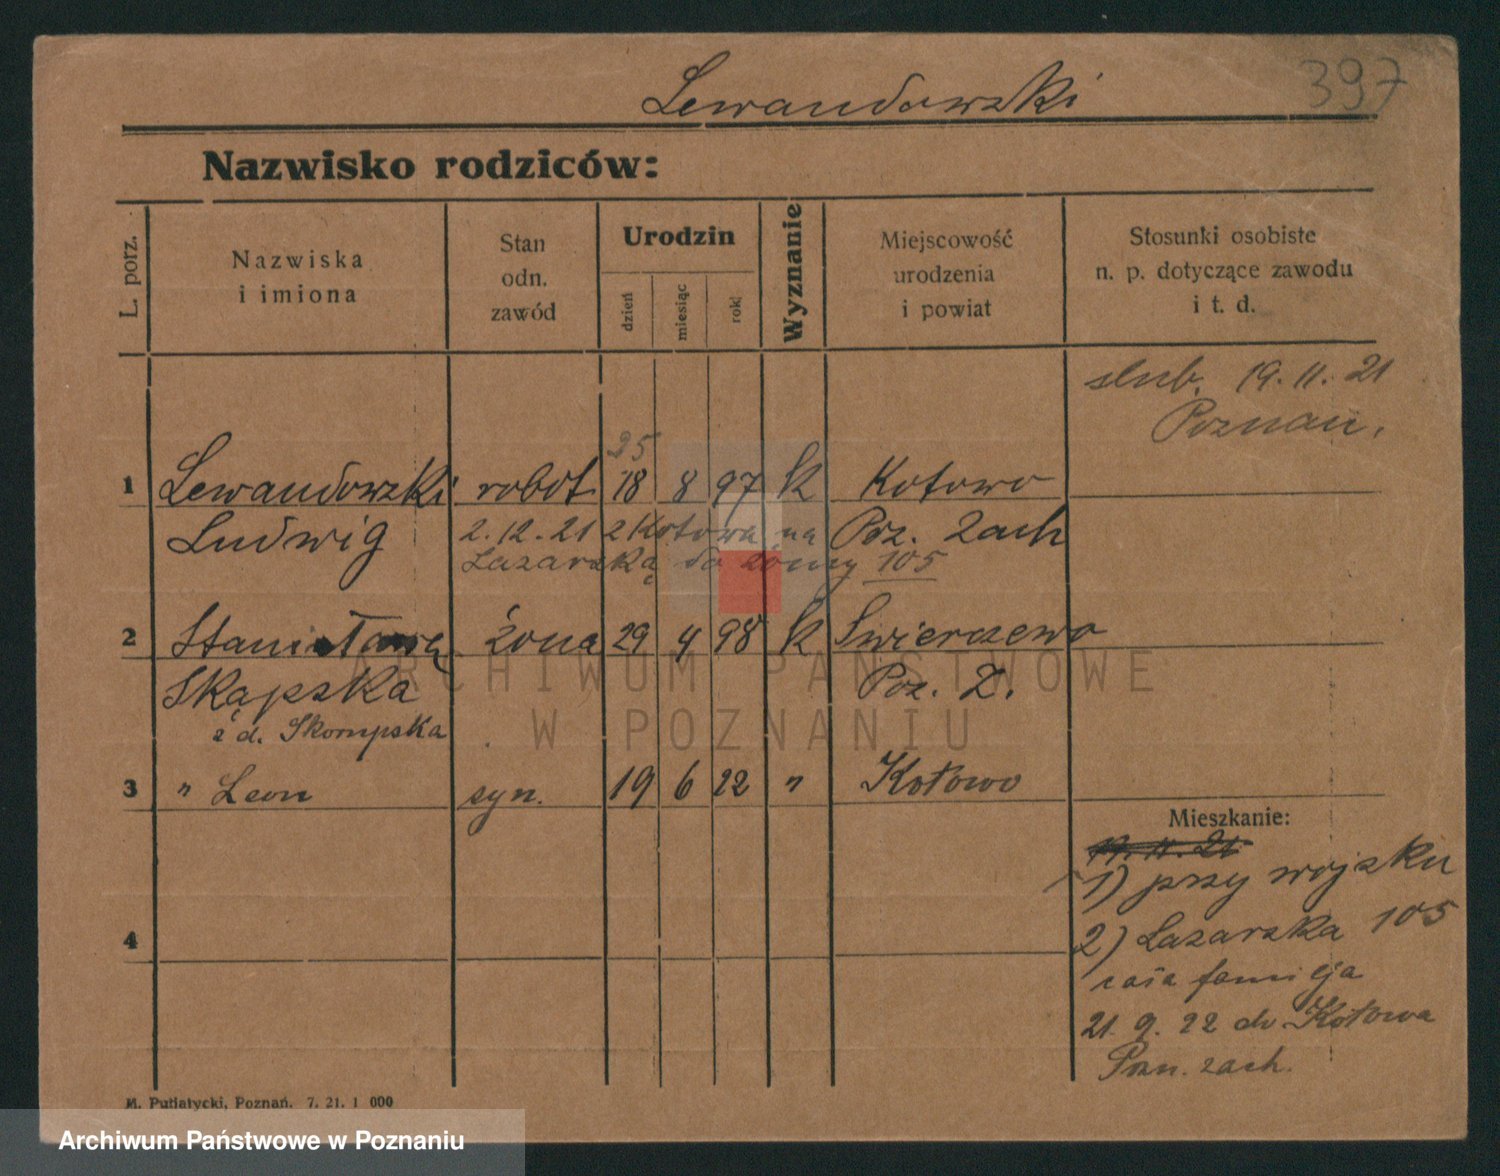 397
Lewandowski
Nazwisko rodziców:
L. porz.
Nazwiska
i imiona
Stan
odn.
zawód
Urodzin
dzień
miesiąc
rok
Wyznanie
Miejscowość
urodzenia
i powiat
Stosunki osobiste
n. p. dotyczące zawodu
i t. d.
slub. 19. 11. 21
Poznan.
25
1 Lewandowski robot. 18 8 97 k Kotowo
Ludwig Poz. Zach
2. 12. 21 z Kotowa na
Lazarską do żony 105
2 Stanisława żona 29 4 98 k Swierczewo
Skąpska Poz. Z.
z d. Skompska
3 " Leon syn. 19 6 22 " Kotowo
Mieszkanie:
19. 11. 21
1) przy wojsku
2) Lazarska 105
cała familja
21. 9. 22 do Kotowa
Pozn. zach.
4
M. Putiatycki, Poznań. 7. 21. 1 000
ARCHIWUM PAŃSTWOWE
W POZNANIU
Archiwum Państwowe w Poznaniu